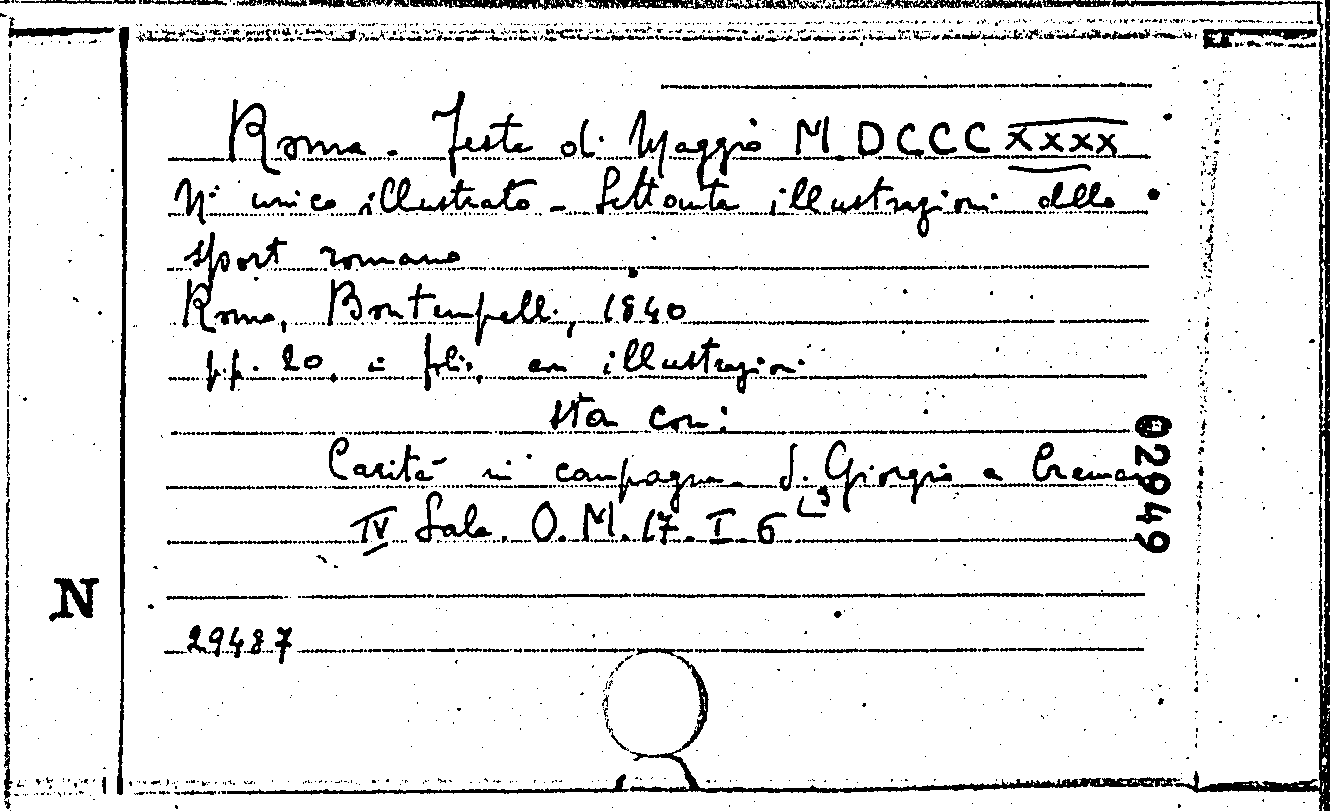 Roma - Feste di Maggio M.DCCCXXXX
N° unico illustrato - Settanta illustrazioni dello
sport romano
Roma, Bontempelli, 1840
pp. 20, in folio, con illustrazioni
sta con:
Carità in campagna S. Giorgio a Cremano
IV Sala. O.M.17.I.6
02949
N
29487